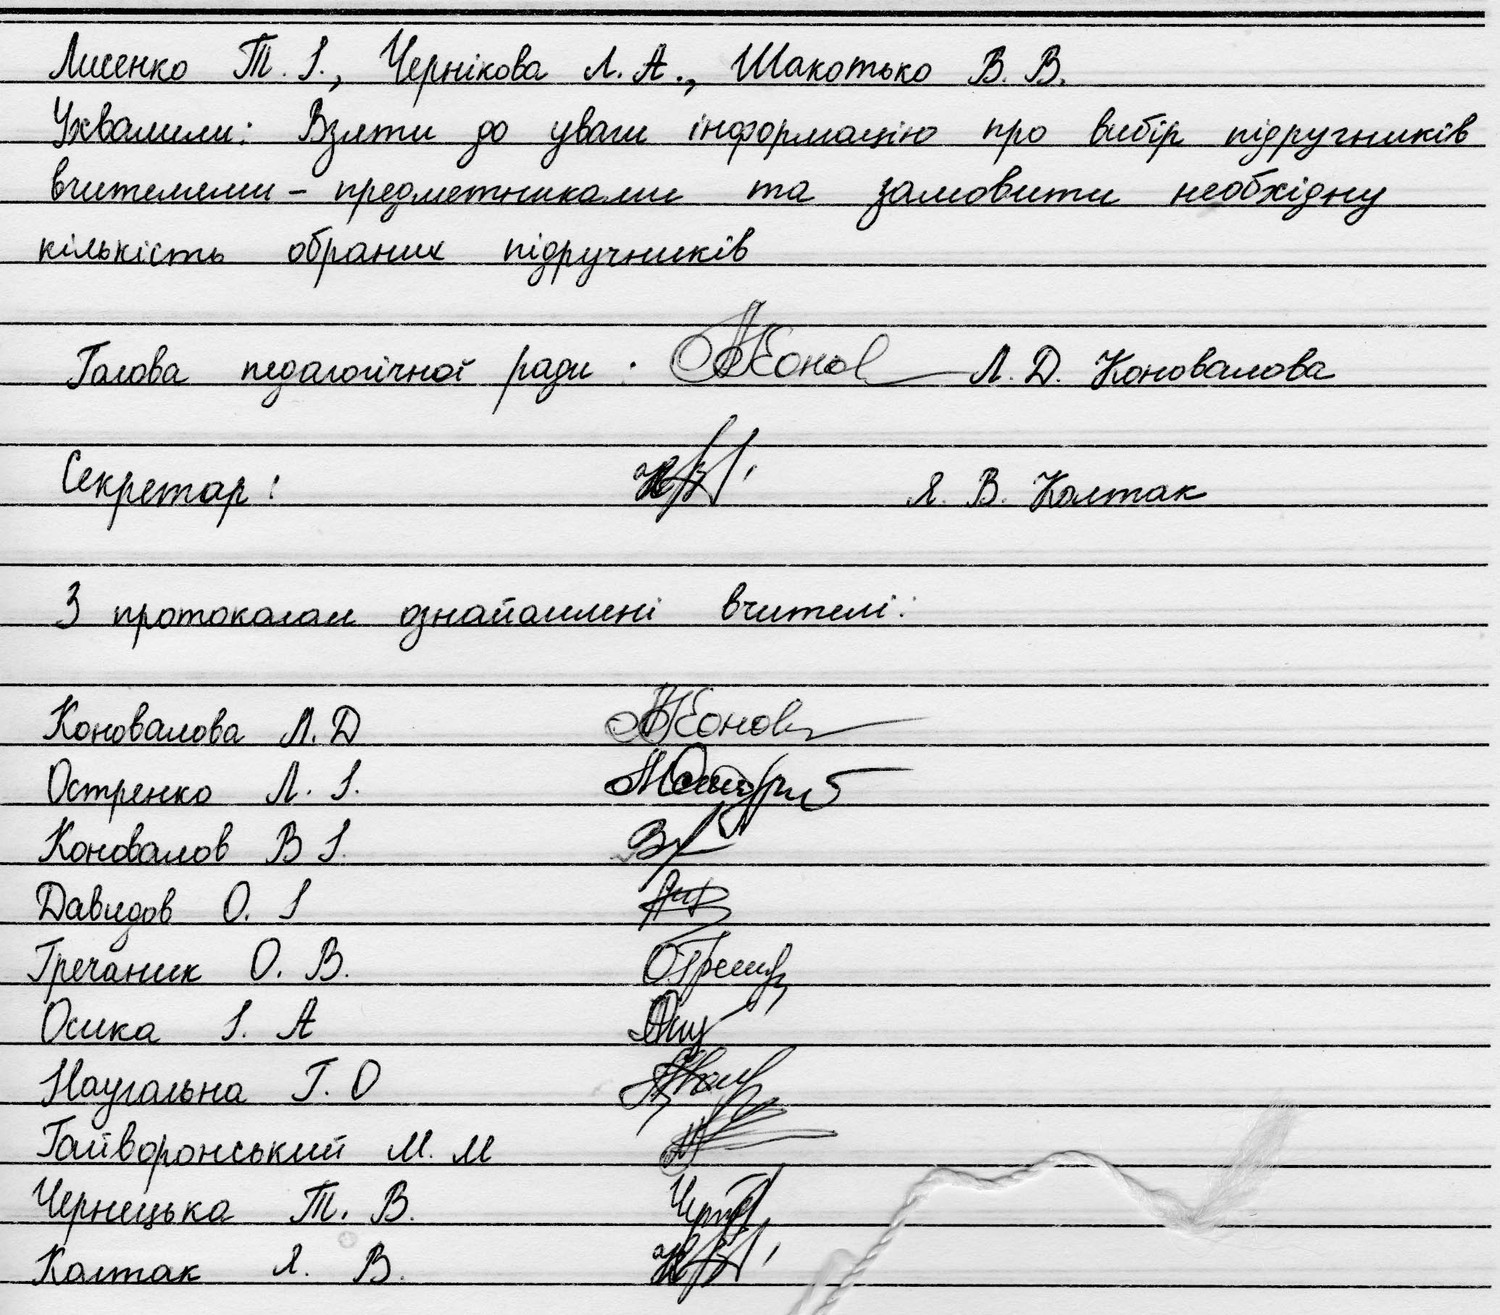 Лисенко Т. І., Чернікова Л. А., Шакотько В. В.
Ухвалили: Взяти до уваги інформацію про вибір підручників
вчителями - предметниками та замовити необхідну
кількість обраних підручників
Голова педагогічної ради: Л. Д. Коновалова
Секретар: Я. В. Колтак
З протоколом ознайомлені вчителі:
Коновалова Л. Д
Остренко Л. І.
Коновалов В І.
Давидов О. І
Гречаник О. В.
Осика І. А
Наугольна Г. О
Гайворонський М. М
Чернецька Т. В.
Колтак Я. В.